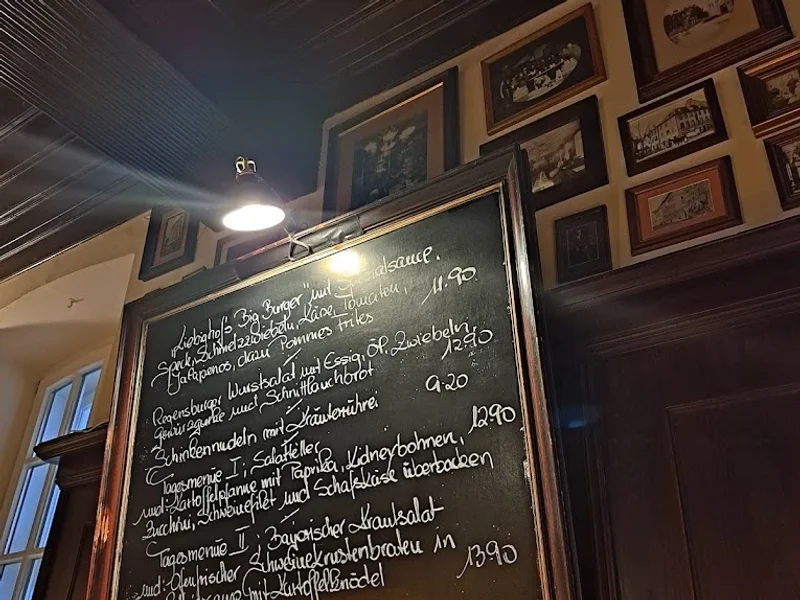 "Liebighof's Big Burger" mit Spezialsauce,
Speck, Schmelzzwiebeln, Käse, Tomaten, 11.90
Jalapenos, dazu Pommes frites
Regensburger Wurstsalat mit Essig, Öl, Zwiebeln,
Gewürzgurke und Schnittlauchbrot 12.90
Schinkennudeln mit Kräuterrührei 9.20
Tagesmenue I, Salatteller
und: Kartoffelpfanne mit Paprika, Kidneybohnen, 12.90
Zucchini, Schweinefilet und Schafskäse überbacken
Tagesmenue II, Bayrischer Krautsalat
und: Ofenfrischer Schweinekrustenbraten in
mit Kartoffelknödel 13.90